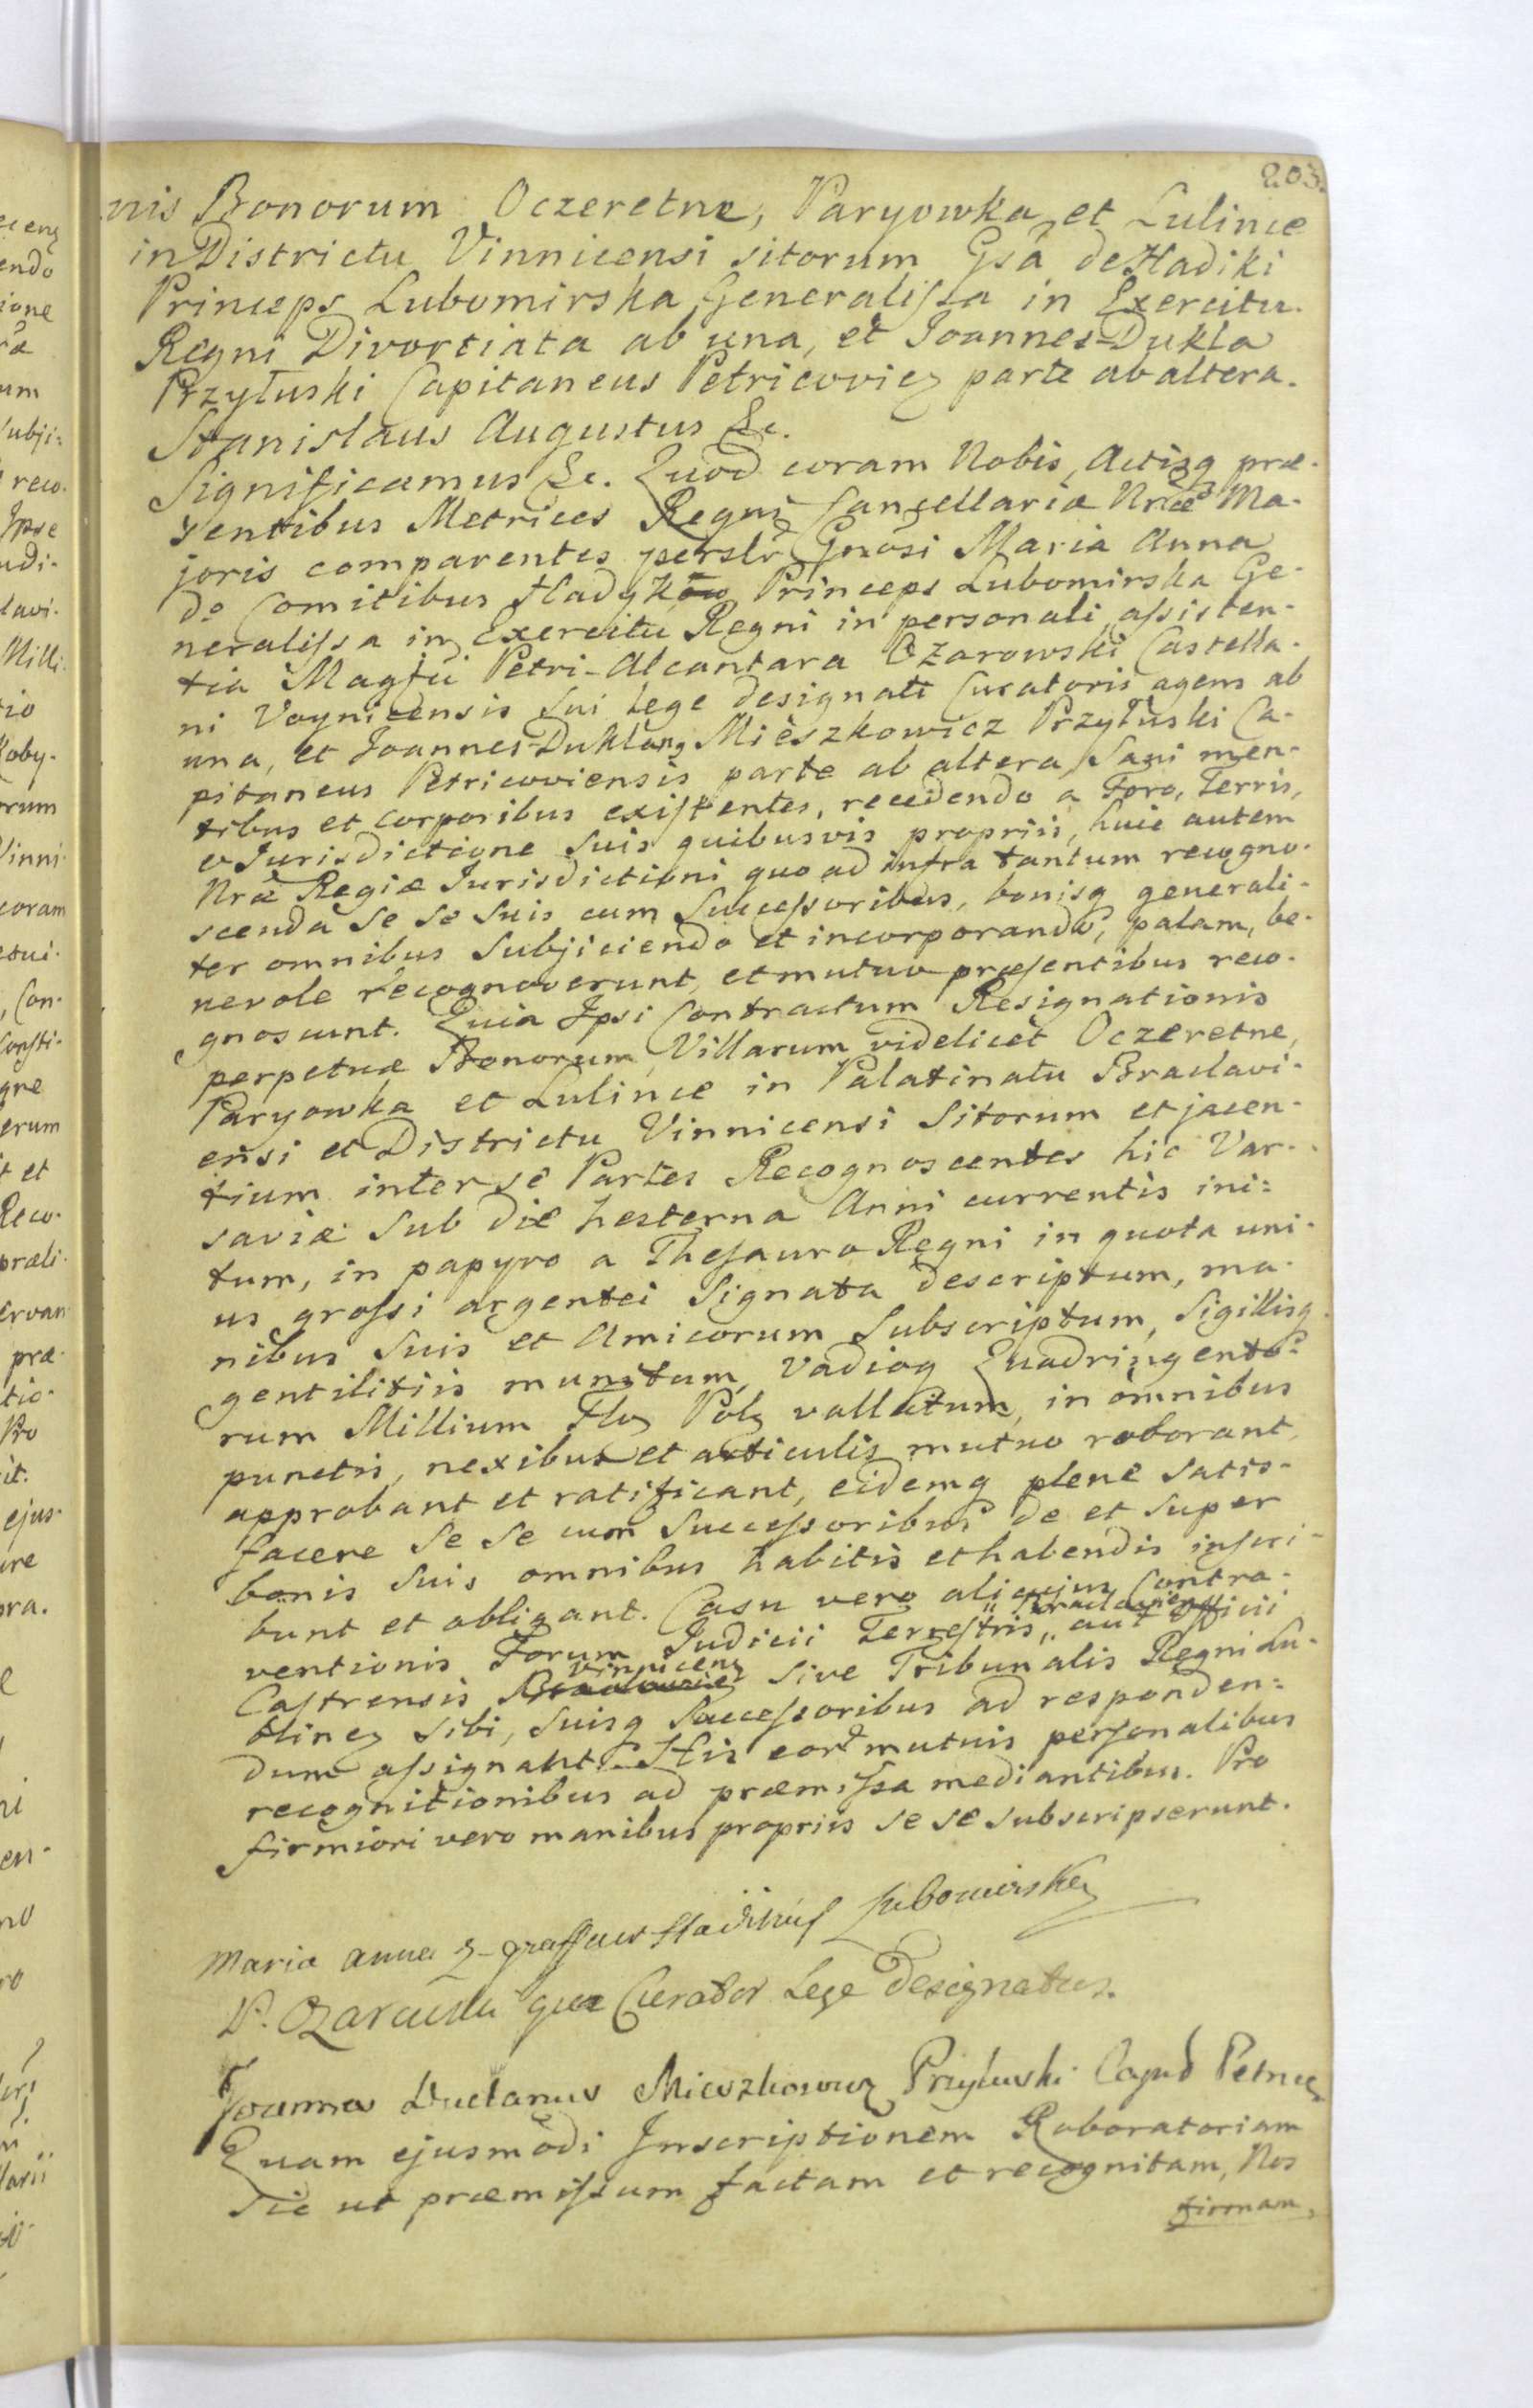 203.
nis Bonorum Oczeretne, Paryowka et Lulince
in Districtu Vinnicensi sitorum Gsa de Hadiki
Princeps Lubomirska Generalissa in Exercitu
Regni Divortiata ab una, et Joannes Dukla
Przyłuski Capitaneus Petricoviez parte ab altera.
Stanislaus Augustus &c.
Significamus &c. Quod coram Nobis, Actisq præ-
sentibus Metrices Regni Cancellariæ Nræ Ma-
joris comparentes perslr Gnosi Maria Anna
de Comitibus Hadyków Princeps Lubomirska Ge-
neralissa in Exercitu Regni in personali assisten-
tia Magfci Petri-Alcantara Ożarowski Castella-
ni Voynicensis Sui Lege designati Curatoris agens ab
una, et Joannes Duklanq Mieszkowicz Przyłuski Ca-
pitaneus Petricoviensis parte ab altera Sani men-
tibus et corporibus existentes, recedendo a Foro, Terris,
et Jurisdictione Suis quibusvis propriis, huic autem
Nræ Regiæ Jurisdictioni quo ad infra tantum recogno-
scenda se se suis cum Successoribus, bonisq generali-
ter omnibus Subjiciendo et incorporando, palam, be-
nevole recognoverunt, et mutuo præsentibus reco-
gnoscunt. Quia Ipsi Contractum Resignationis
perpetuæ Bonorum Villarum videlicet Oczeretne,
Paryowka et Lulince in Palatinatu Braclavi-
ensi et Districtu Vinnicensi Sitorum et jacen-
tium inter se Partes Recognoscentes hic Var-
saviæ Sub die hesterna Anni currentis ini=
tum, in papyro a Thesauro Regni in quota uni-
us grossi argentei Signata descriptum, ma-
nibus Suis et Amicorum Subscriptum, Sigillisq
gentilitiis munitum, Vadioq Quadringento=
rum Millium Flor Polz vallatum, in omnibus
punctis, nexibus et articulis mutuo roborant,
approbant et ratificant, eidemq plene satis-
facere Se Se cum Successoribus de et super
bonis Suis omnibus habitis et habendis inscri-
bunt et obligant. Casu vero alicujus Contra-
ventionis Forum Judicii Terrestris „ Braclaviens aut Officii
Castrensis Vinnicenz sive Tribunalis Regni Lu-
blinez Sibi, Suisq Successoribus ad responden=
dum assignant. His eor mutuis personalibus
recognitionibus ad præmissa mediantibus. Pro
firmiori vero manibus propriis se se subscripserunt.
Maria Anna Lubomirska
P. Ożarowski qua Curator Lege Designatus.
Joannes Duclanus Mieszkowicz Przyłuski Capnd Petric
Quam ejusmodi Inscriptionem Roboratoriam
sic ut præmissum factam et recognitam, Nos
firmam,